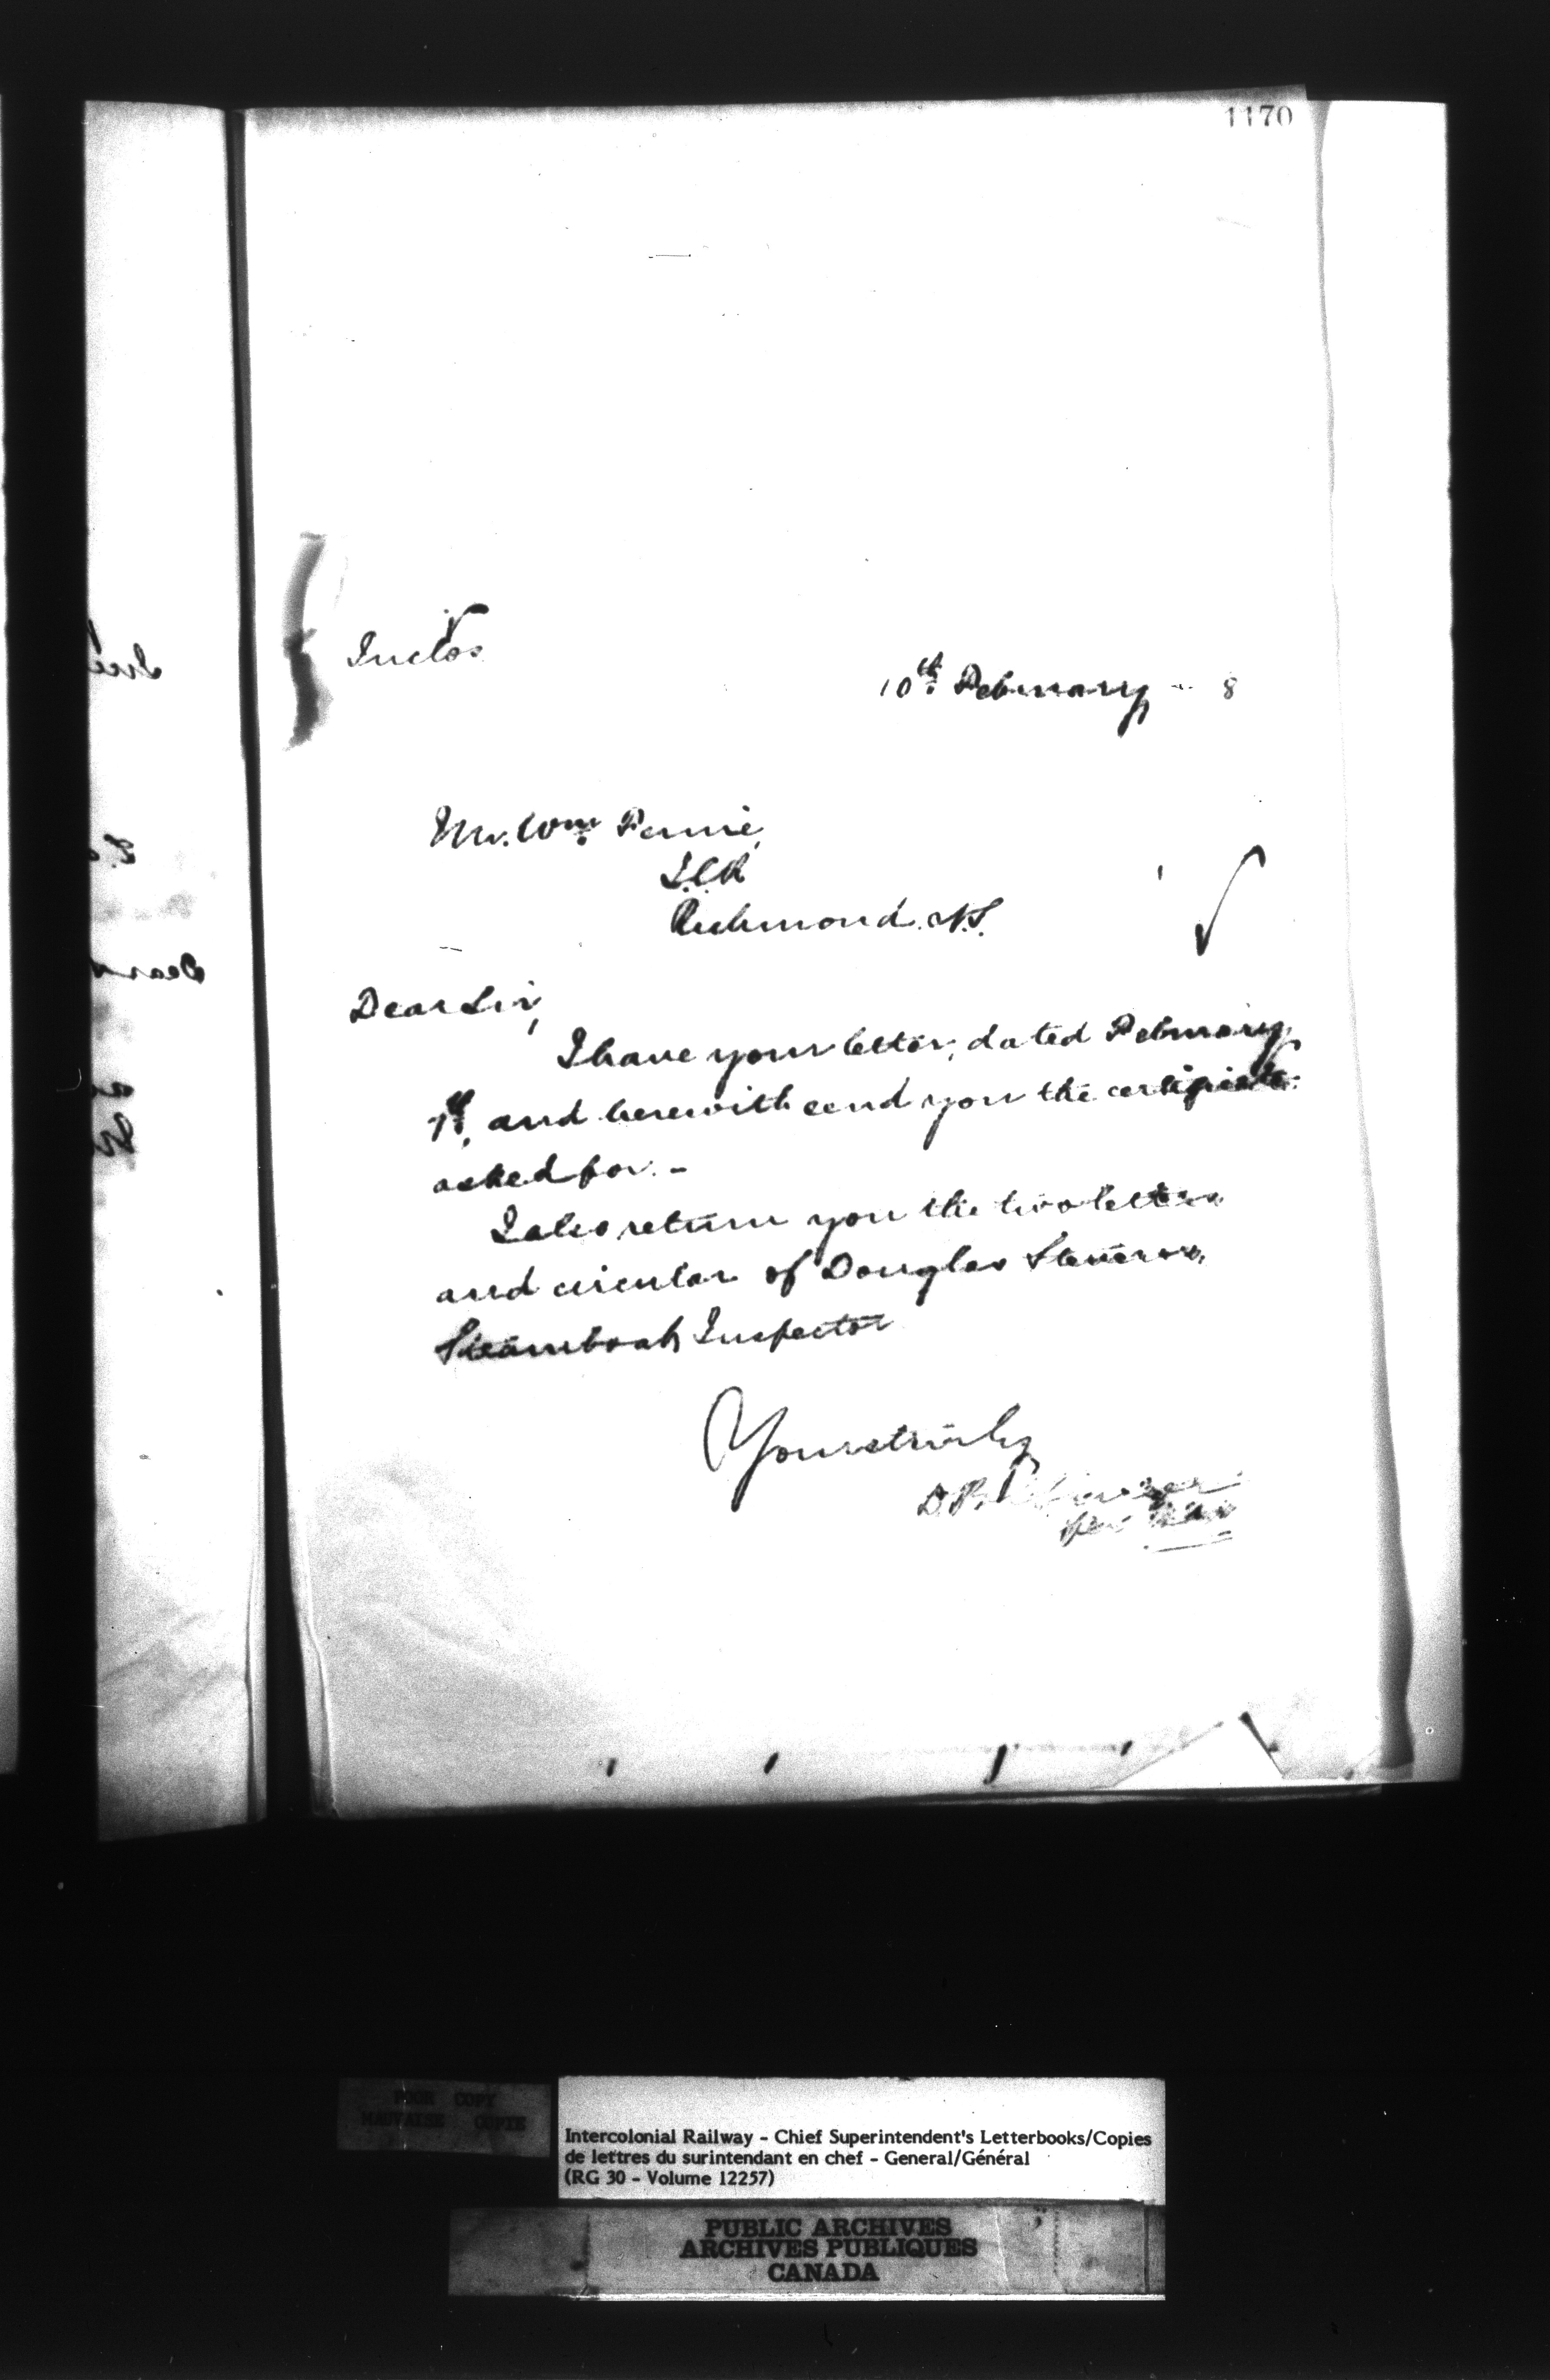 1170
Inclos
10th February - 8
Mr. Wm Rennie,
I.C.R
Richmond. N.S.
Dear Sir,
I have your letter, dated February
7th, and herewith send you the certificate
asked for. -
I also return you the two letters
and circular of Douglas Stevens,
Steamboat Inspector
Yours truly
D. P.
per
POOR COPY
MAUVAISE COPIE
Intercolonial Railway - Chief Superintendent's Letterbooks/Copies
de lettres du surintendant en chef - General/Général
(RG 30 - Volume 12257)
PUBLIC ARCHIVES
ARCHIVES PUBLIQUES
CANADA